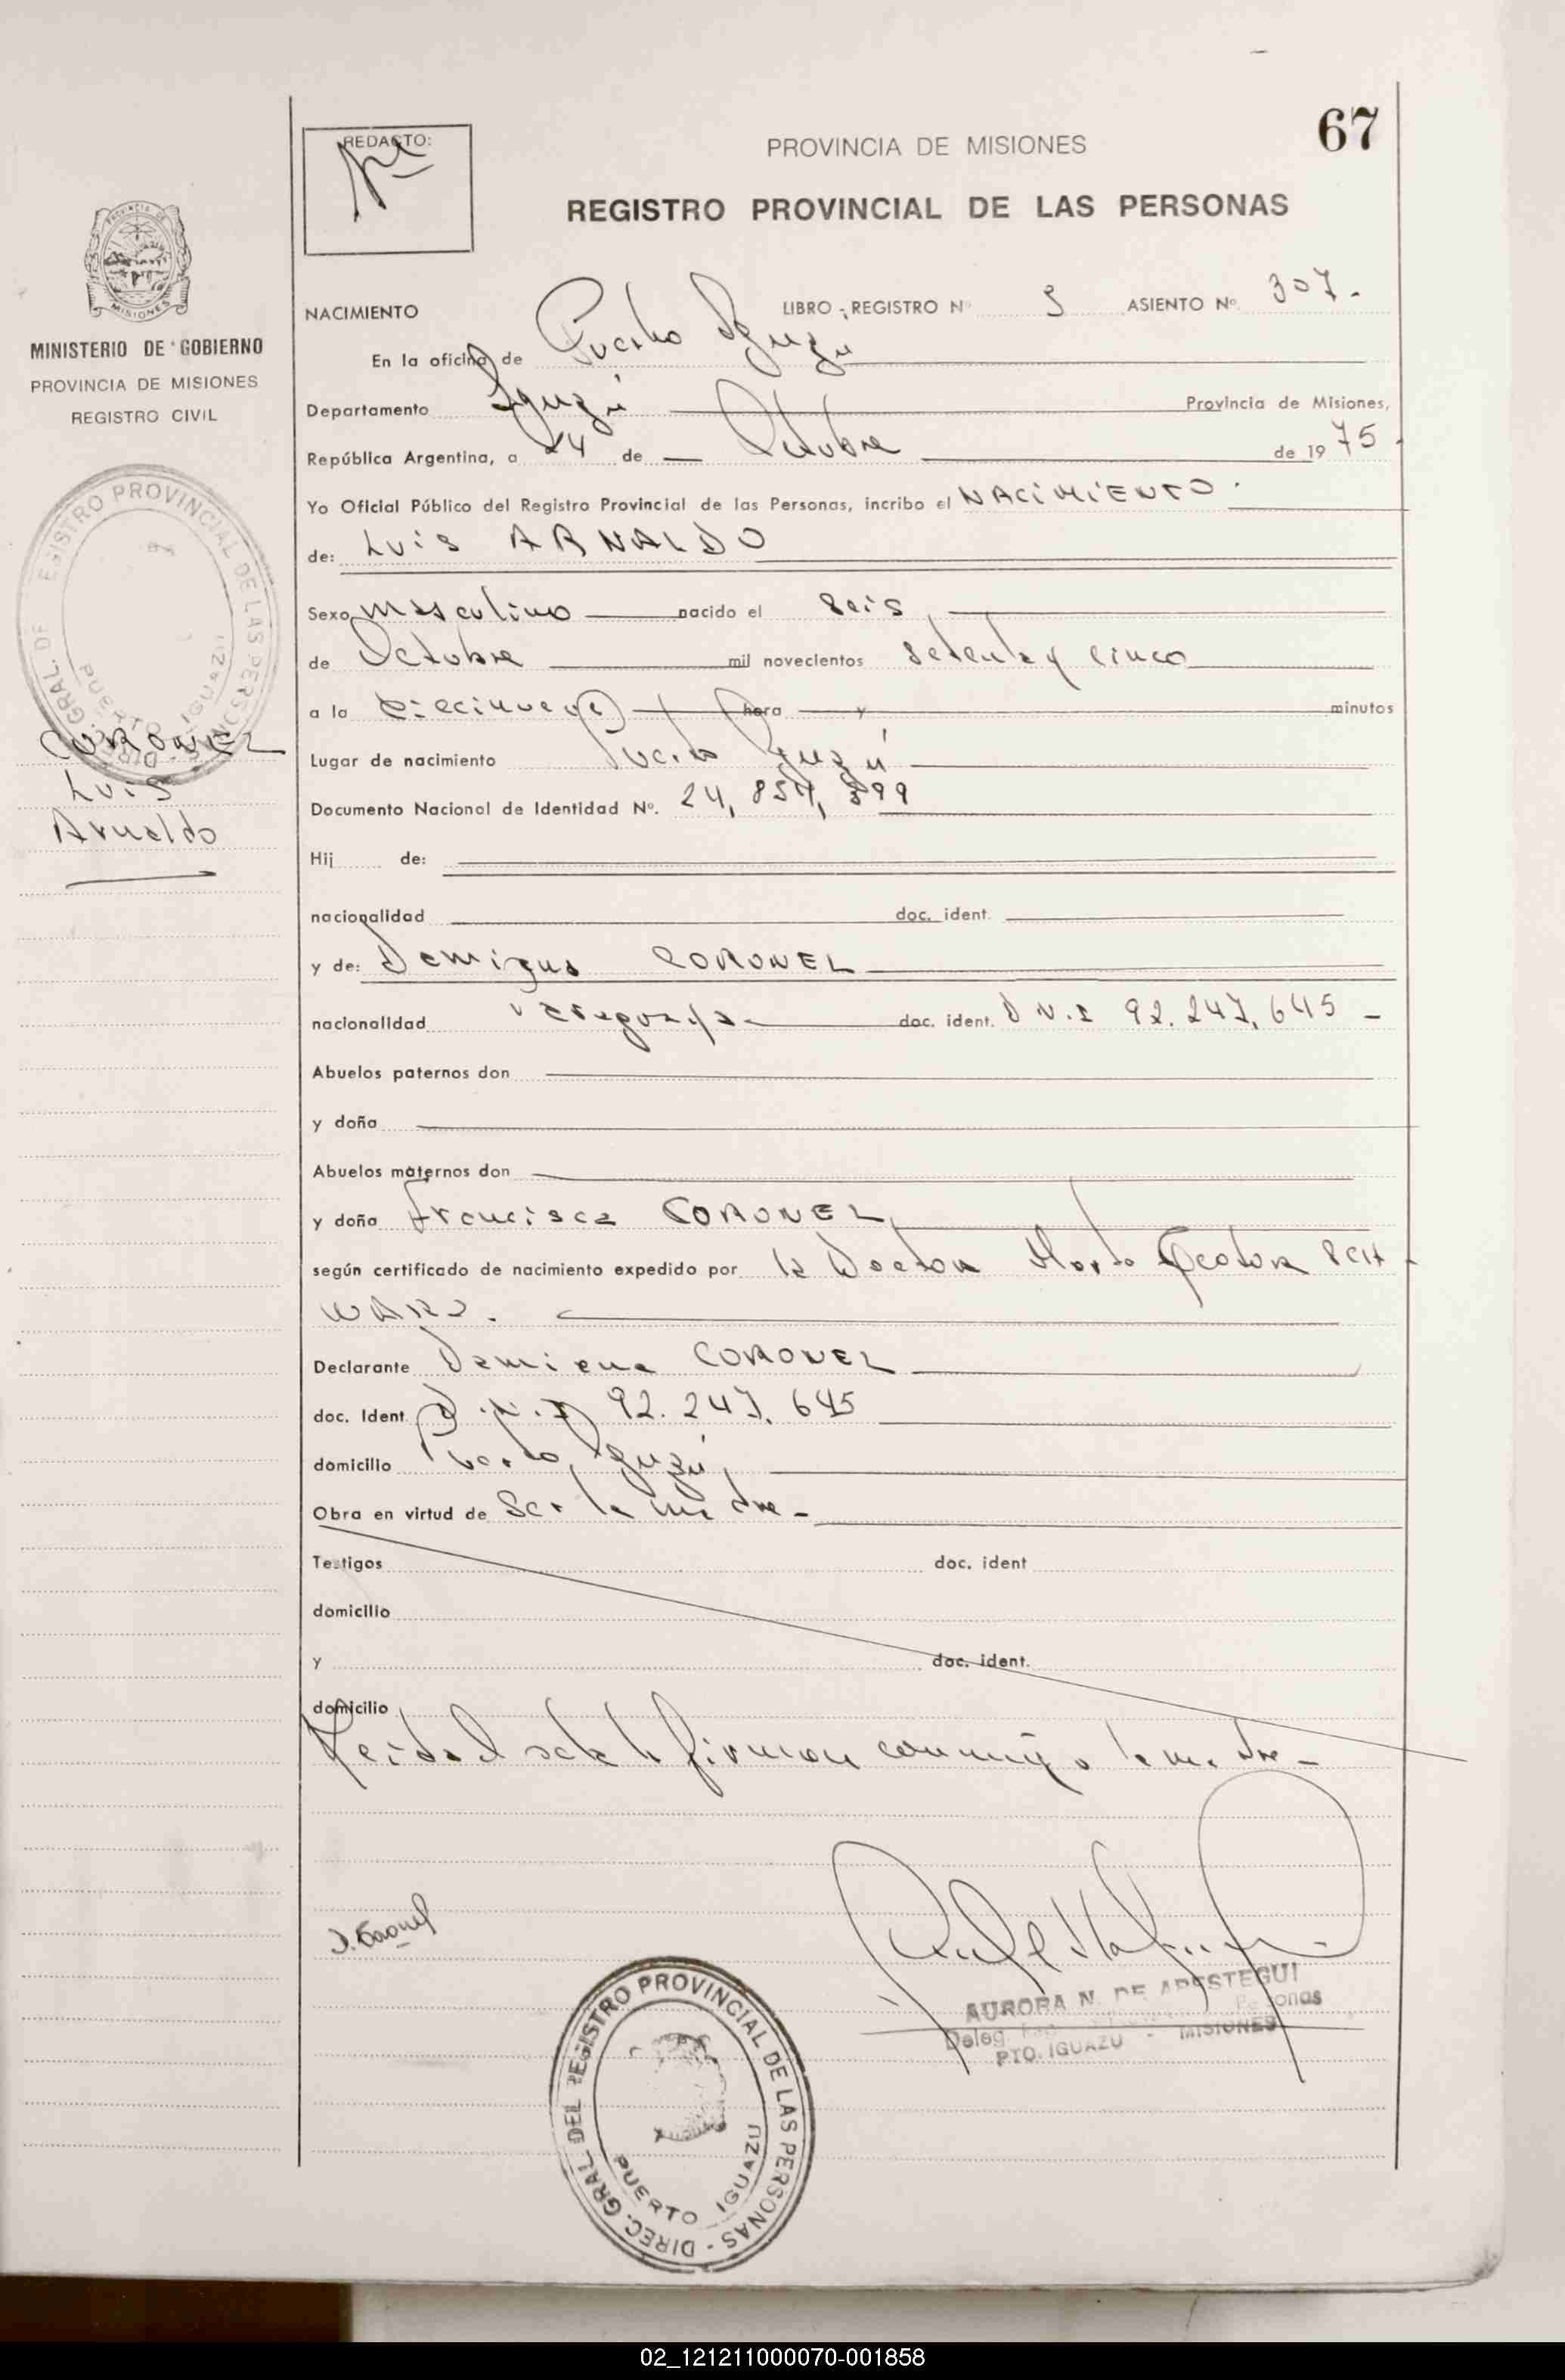 67
REDACTO:
PROVINCIA DE MISIONES
REGISTRO PROVINCIAL DE LAS PERSONAS
MISIONES
MINISTERIO DE GOBIERNO
PROVINCIA DE MISIONES
REGISTRO CIVIL
CORONEL
Luis
Arnaldo
NACIMIENTO LIBRO - REGISTRO Nº ASIENTO Nº 307.-
En la oficina de Puerto Iguazú
Departamento Iguazú Provincia de Misiones,
República Argentina, a 24 de Octubre de 1975
Yo Oficial Público del Registro Provincial de las Personas, incribo el NACIMIENTO.
de: LUIS ARNALDO
Sexo masculino nacido el seis
de Octubre mil novecientos setenta y cinco
a la diecinueve hora y minutos
Lugar de nacimiento Puerto Iguazú
Documento Nacional de Identidad Nº. 24,857,399
Hij de:
nacionalidad doc. ident.
y de: Demigna CORONEL
nacionalidad paraguaya doc. ident. D N.I 92.247,645 -
Abuelos paternos don
y doña
Abuelos maternos don
y doña Francisca CORONEL,
según certificado de nacimiento expedido por la Doctora SCH
WARZ.
Declarante CORONEL
doc. Ident. D.N.I 92.247.645
domicilio Puerto Iguazú,
Obra en virtud de Ser la madre -
Testigos doc. ident
domicilio
y doc. ident.
domicilio
Leida el acta la firman conmigo la madre -
D. Coronel
AURORA N. DE ARESTEGUI
Deleg. Personas
PTO. IGUAZU - MISIONES
DIREC. GRAL. DEL REGISTRO PROVINCIAL DE LAS PERSONAS -
PUERTO IGUAZU
02_121211000070-001858